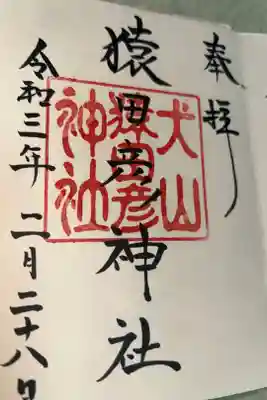 奉拝
猿田彦神社
犬山
猿田彦
神社
令和三年二月二十八日